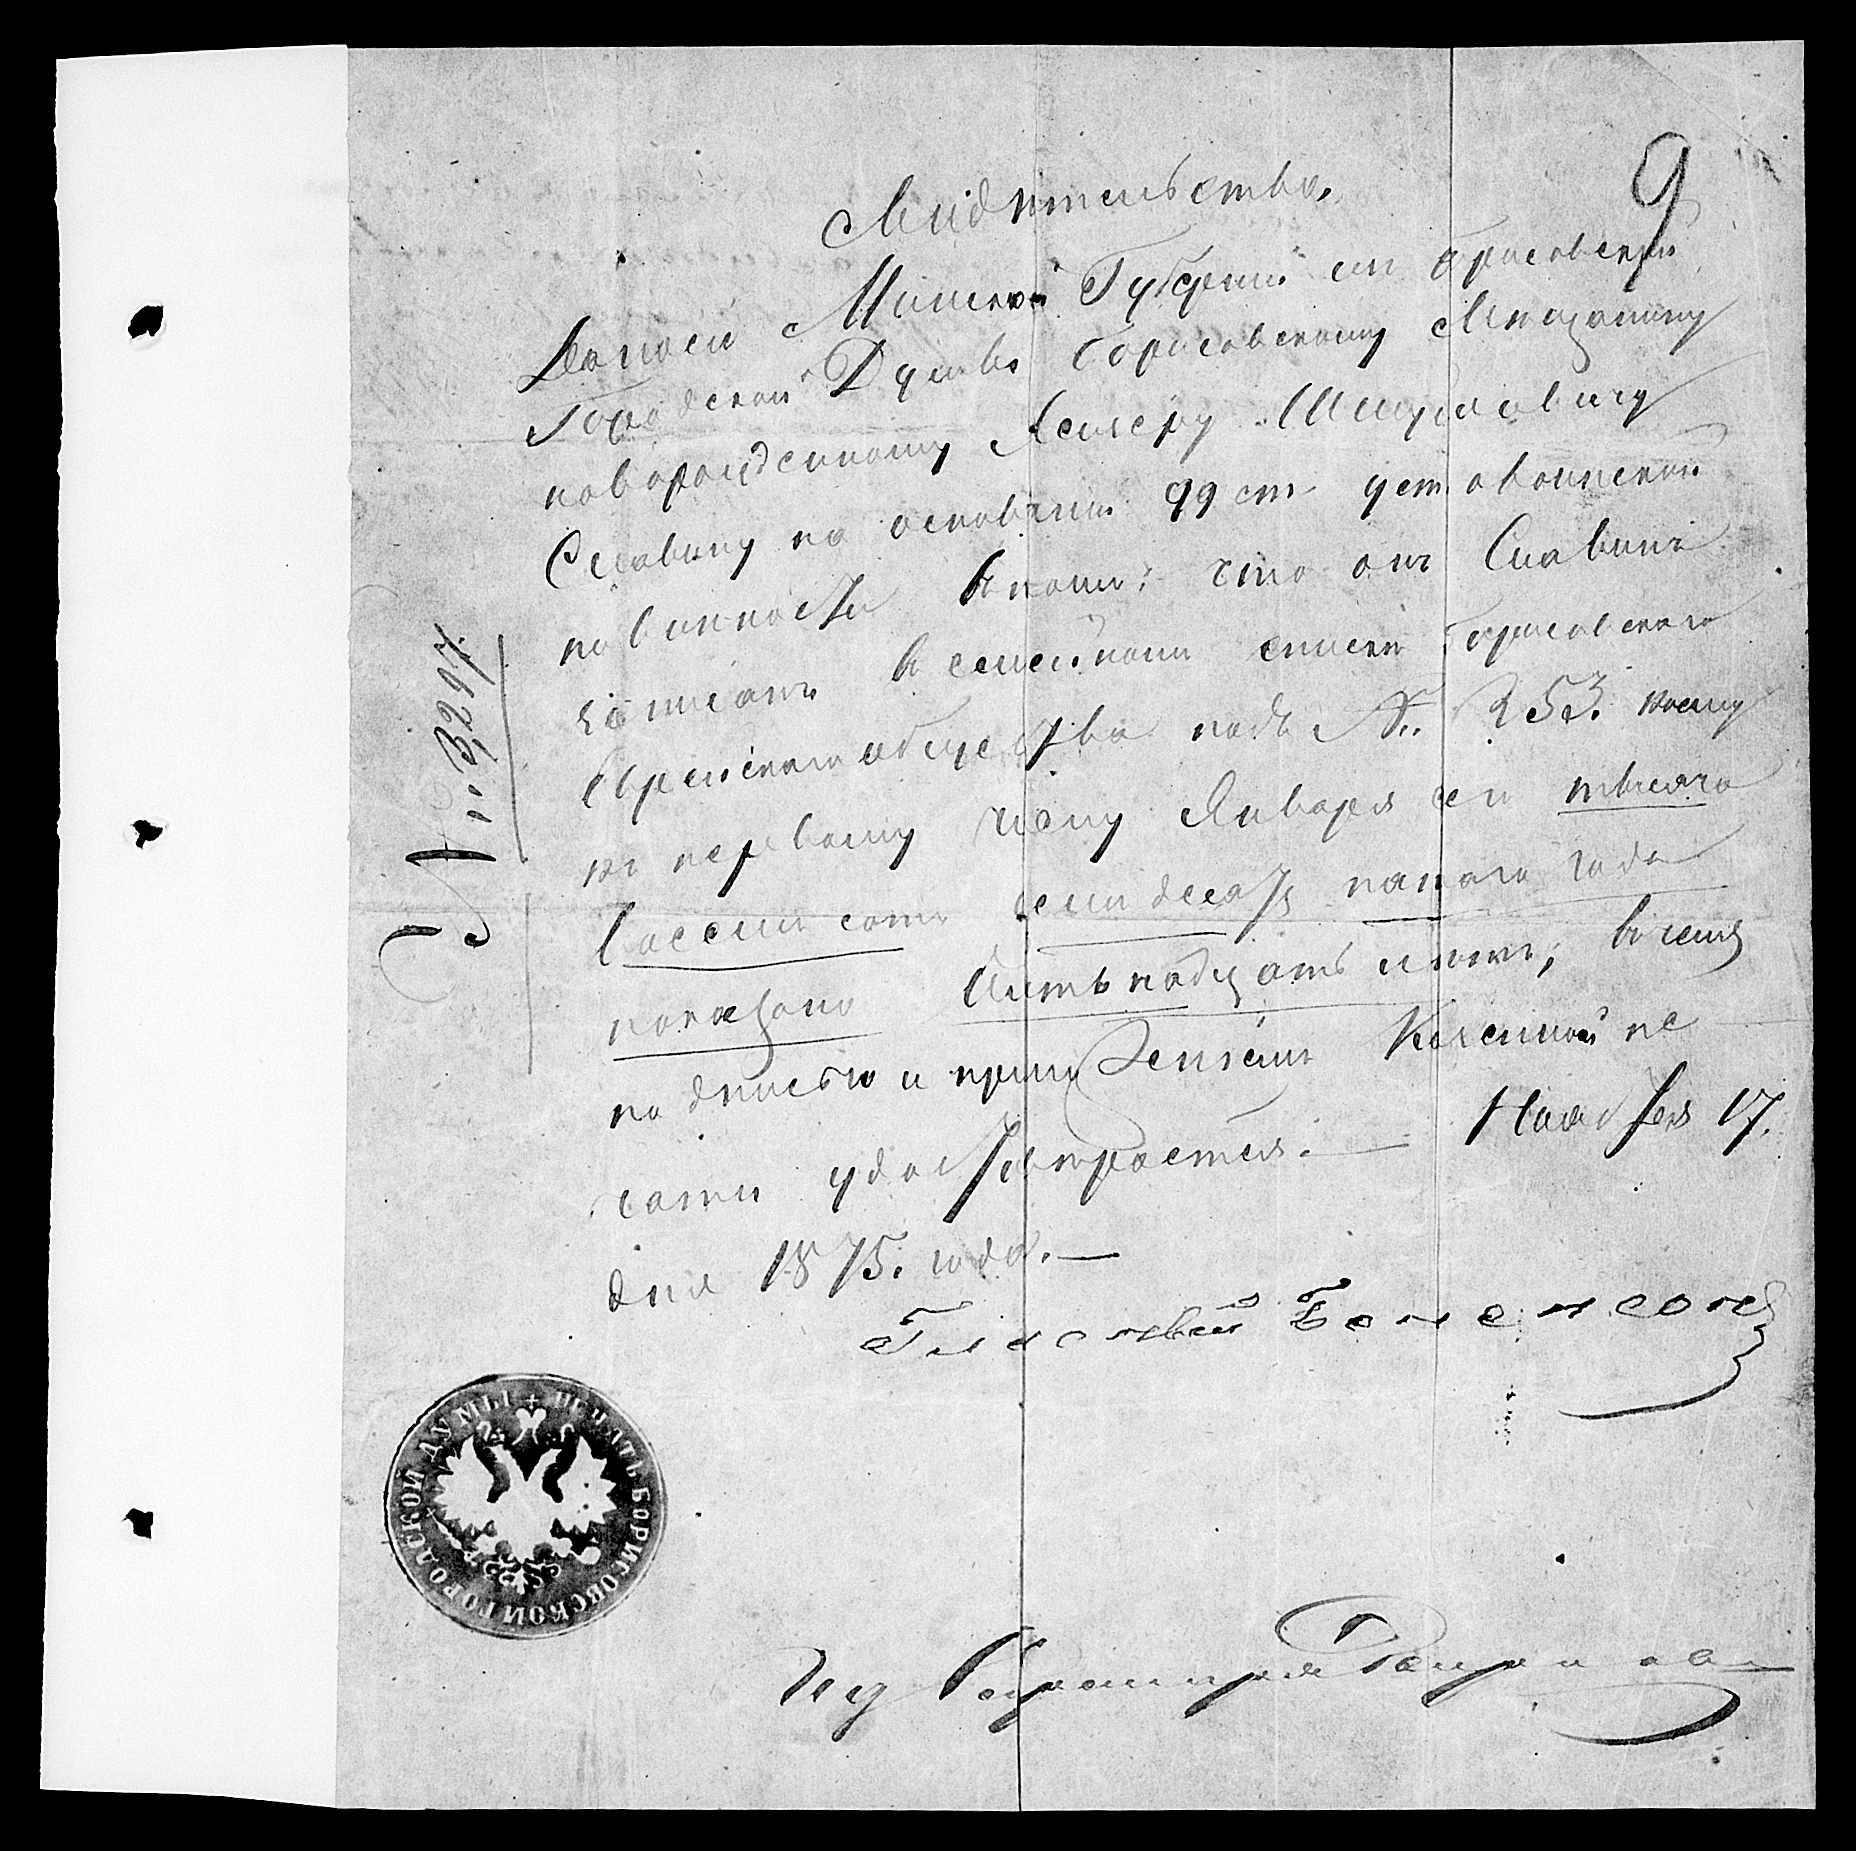 9
Свидѣтельство,
Дано сіе Минской Губерніи изъ Борисовской
Городской Думы Борисовскому Мѣщанину
новорожденному Лейзеру
Славину на основаніи 99 ст. уст. о воинской
повинности въ томъ: что онъ Славинъ
записанъ въ семейномъ списке Борисовскаго
Еврейскаго общества подъ №. 253. коему
къ первому числу Января сего тысяча
восемьсотъ семидесятъ пятаго года
показано лѣтъ, въ чемъ
подписью и приложеніемъ Казенной пе
чати удостовѣряется. — Ноября 17.
дня 1875. года. —
№ 3297.
Гласный Бененсонъ
ПЕЧАТЬ БОРИСОВСКОЙ ГОРОДСКОЙ ДУМЫ +
Секретаря